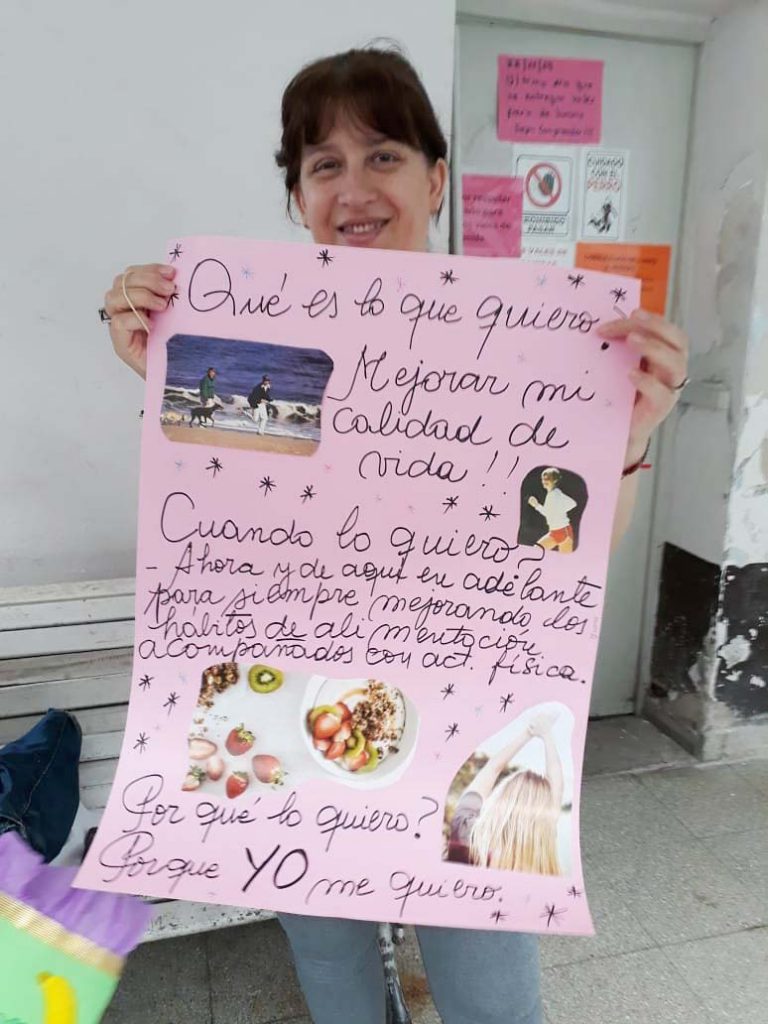 Qué es lo que quiero?
Mejorar mi
calidad de
vida!!
Cuando lo quiero?
- Ahora y de aquí en adelante
para siempre mejorando los
hábitos de alimentación
acompañados con act. física.
Por qué lo quiero?
Porque YO me quiero.
PROHIBIDO
PASAR
CUIDADO
CON EL
PERRO